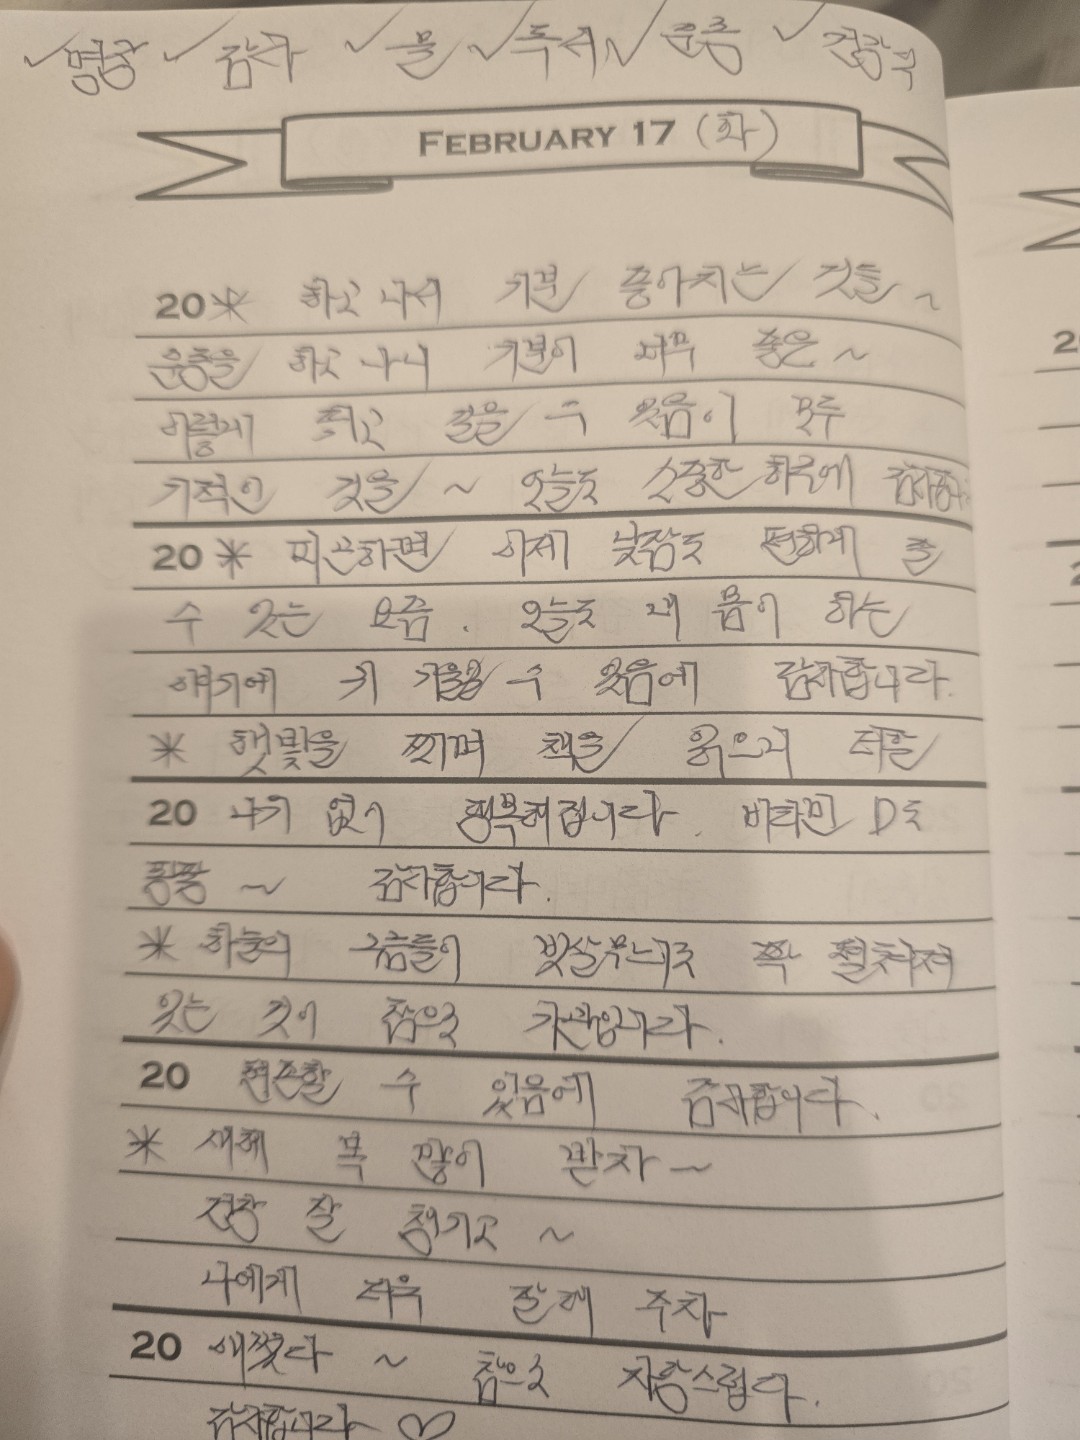 ✓명상 ✓감사 ✓물 ✓독서 ✓운동 ✓건강식
FEBRUARY 17 (화)
20 * 하고 나서 기분 좋아지는 것들 ~
운동을 하고 나니 기분이 너무 좋은 ~
이렇게 하고 걸을 수 있음이 모두
기적인 것을 ~ 오늘도 소중한 하루에 감사합니다
20 * 피곤하면 이제 낮잠도 편하게 잘
수 있는 요즘. 오늘도 내 몸이 하는
얘기에 귀 기울일 수 있음에 감사합니다.
* 햇빛을 쬐며 책을 읽으니 더할
20 나위 없이 행복해집니다. 비타민 D도
퐁퐁 ~ 감사합니다.
* 하늘의 구름들이 빗살무늬로 쫙 펼쳐져
있는 것이 참으로 가관입니다.
20 현존할 수 있음에 감사합니다.
* 새해 복 많이 받자 ~
건강 잘 챙기고 ~
나에게 더욱 잘해 주자
20 애썼다 ~ 참으로 자랑스럽다.
감사합니다 ♡
2
20